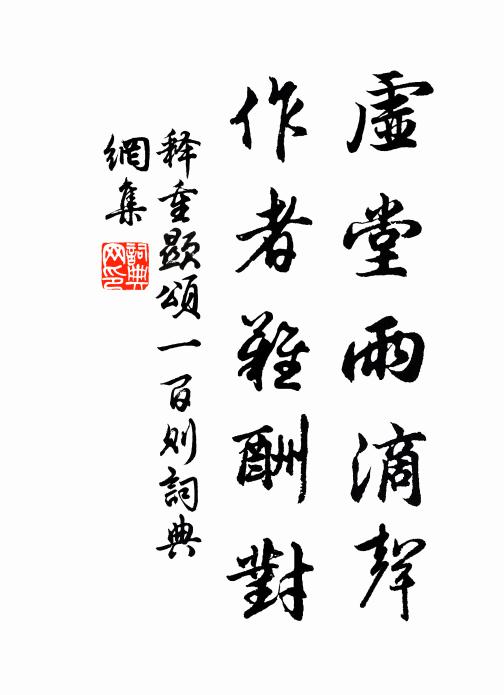 虛堂雨滴聲
作者難酬對
释重顯頌一百则詞典
網集
詞典网印